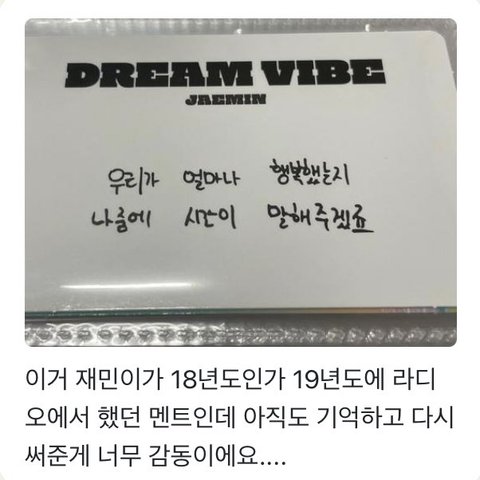 DREAM VIBE
JAEMIN
우리가 얼마나 행복했는지
나름에 시간이 말해주겠죠
이거 재민이가 18년도인가 19년도에 라디
오에서 했던 멘트인데 아직도 기억하고 다시
써준게 너무 감동이에요....